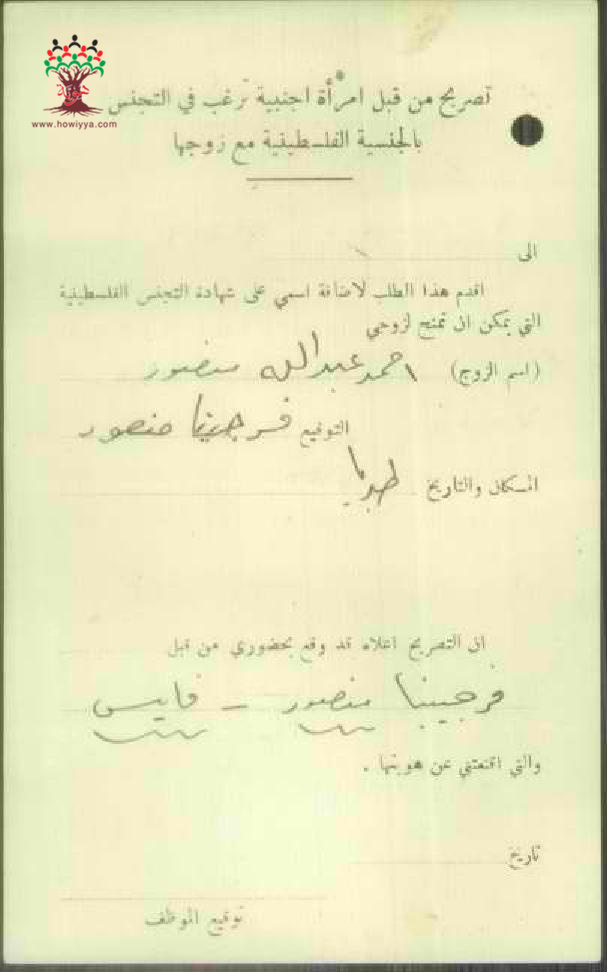 www.howiyya.com
تصريح من قبل امرأة اجنبية ترغب في التجنس
بالجنسية الفلسطينية مع زوجها
الى
اقدم هذا الطلب لاضافة اسمي على شهادة التجنس الفلسطينية
التي يمكن ان تمنح لزوجي
(اسم الزوج) احمد عبدالله منصور
التوقيع فرجينيا منصور
المكان والتاريخ
ان التصريح اعلاه قد وقع بحضوري من قبل
فرجينيا منصور - فايس
والتي اقنعتني عن هويتها .
تاريخ
توقيع الموظف